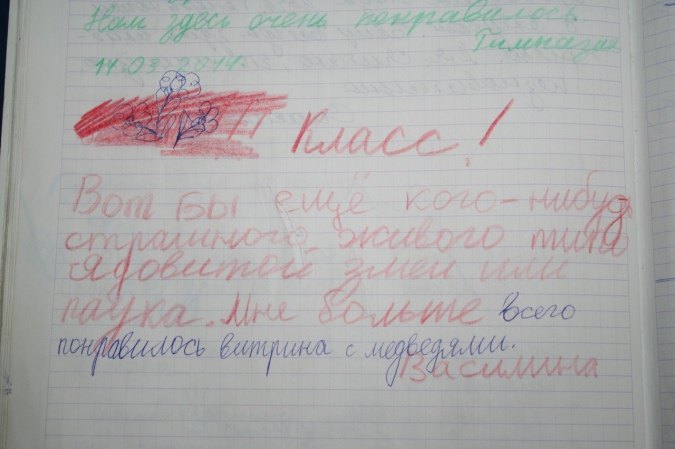 Нам здесь очень понравилось.
Гимназия
14.03.2014г.
Класс!
Вот бы ещё кого-нибудь
страшного живого типо
ядовитой змеи или
паука. Мне больше всего
понравилось витрина с медведями.
Василина